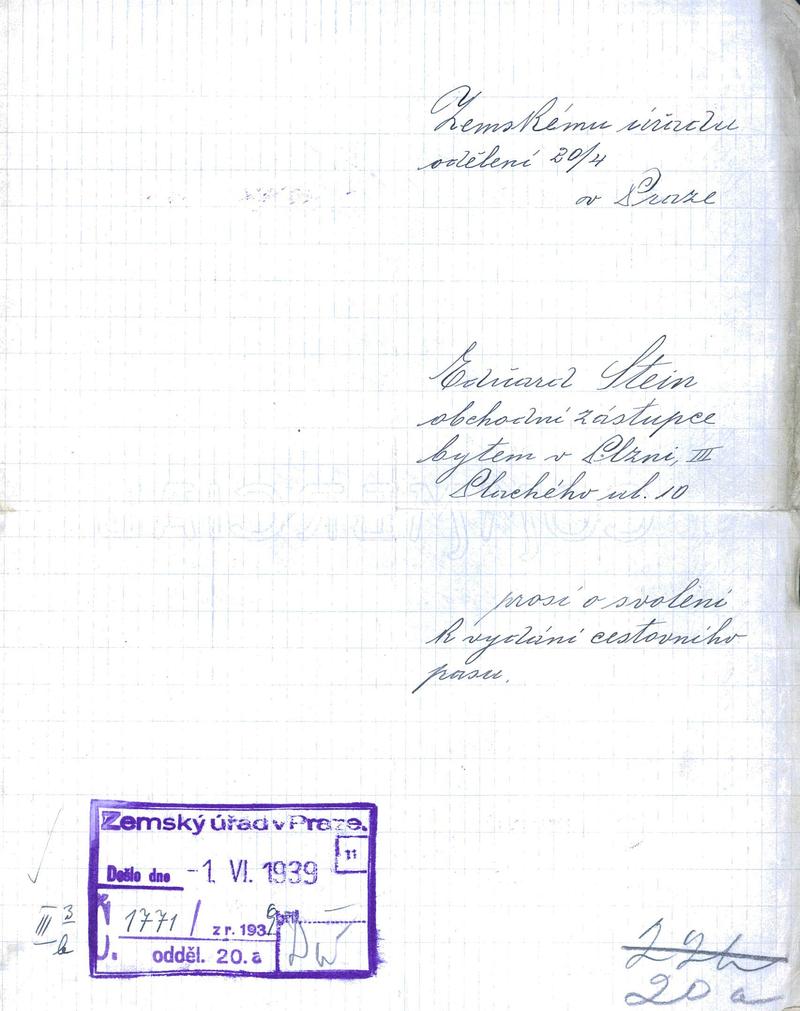 Zemskému úřadu
oddělení 20/4
v Praze
Eduard Stein
obchodní zástupce
bytem v Plzni, III
Plachého ul. 10
prosí o svolení
k vydání cestovního
pasu.
Zemský úřad v Praze.
11
Došlo dne -1. VI. 1939
III 3
b
1771 / z r. 1939
odděl. 20. a
20 a